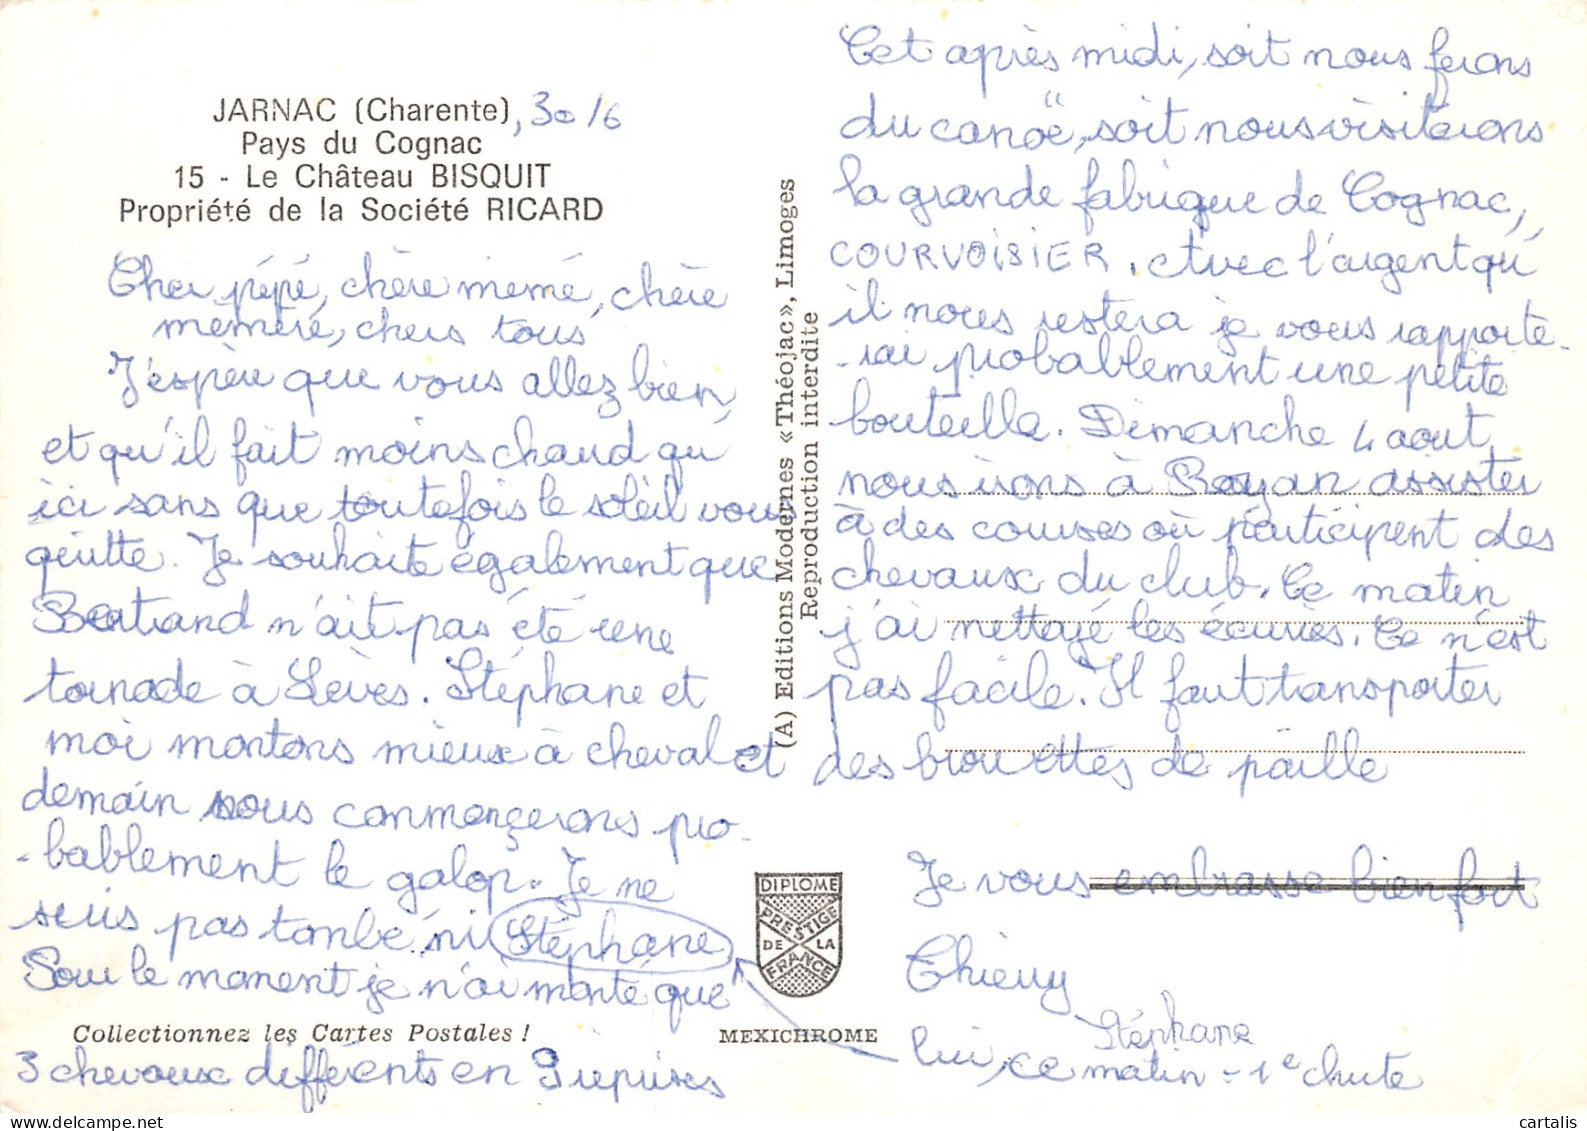 JARNAC (Charente), 30/6
Pays du Cognac
15 - Le Château BISQUIT
Propriété de la Société RICARD
Cher pépé, chère mémé, chère
mémère, chers tous
J'espère que vous allez bien,
et qu'il fait moins chaud qu'
ici sans que toutefois le soleil vous
quitte. Je souhaite également que
Bertrand n'ait pas été une
tornade à Lèves. Stéphane et
moi montons mieux à cheval et
demain nous commençerons pro-
-bablement le galop. Je ne
suis pas tombé ni Stéphane
Pour le moment je n'ai monté que
3 chevaux différents en 9 reprises
Collectionnez les Cartes Postales !
(A) Editions Modernes «Théojac», Limoges
Reproduction interdite
DIPLOME
PRESTIGE
DE LA
FRANCE
MEXICHROME
Cet après midi, soit nous ferons
du canoë, soit nous visiterons
la grande fabrique de Cognac,
COURVOISIER. Avec l'argent qu'
il nous restera je vous rapporte-
-rai probablement une petite
bouteille. Dimanche 4 aout
nous irons à Royan assister
à des courses où participent des
chevaux du club. Ce matin
j'ai nettoyé les écuries. Ce n'est
pas facile. Il faut transporter
des brouettes de paille
Je vous embrasse bien fort
Thierry
Stéphane
lui, ce matin = 1e chute
cartalis